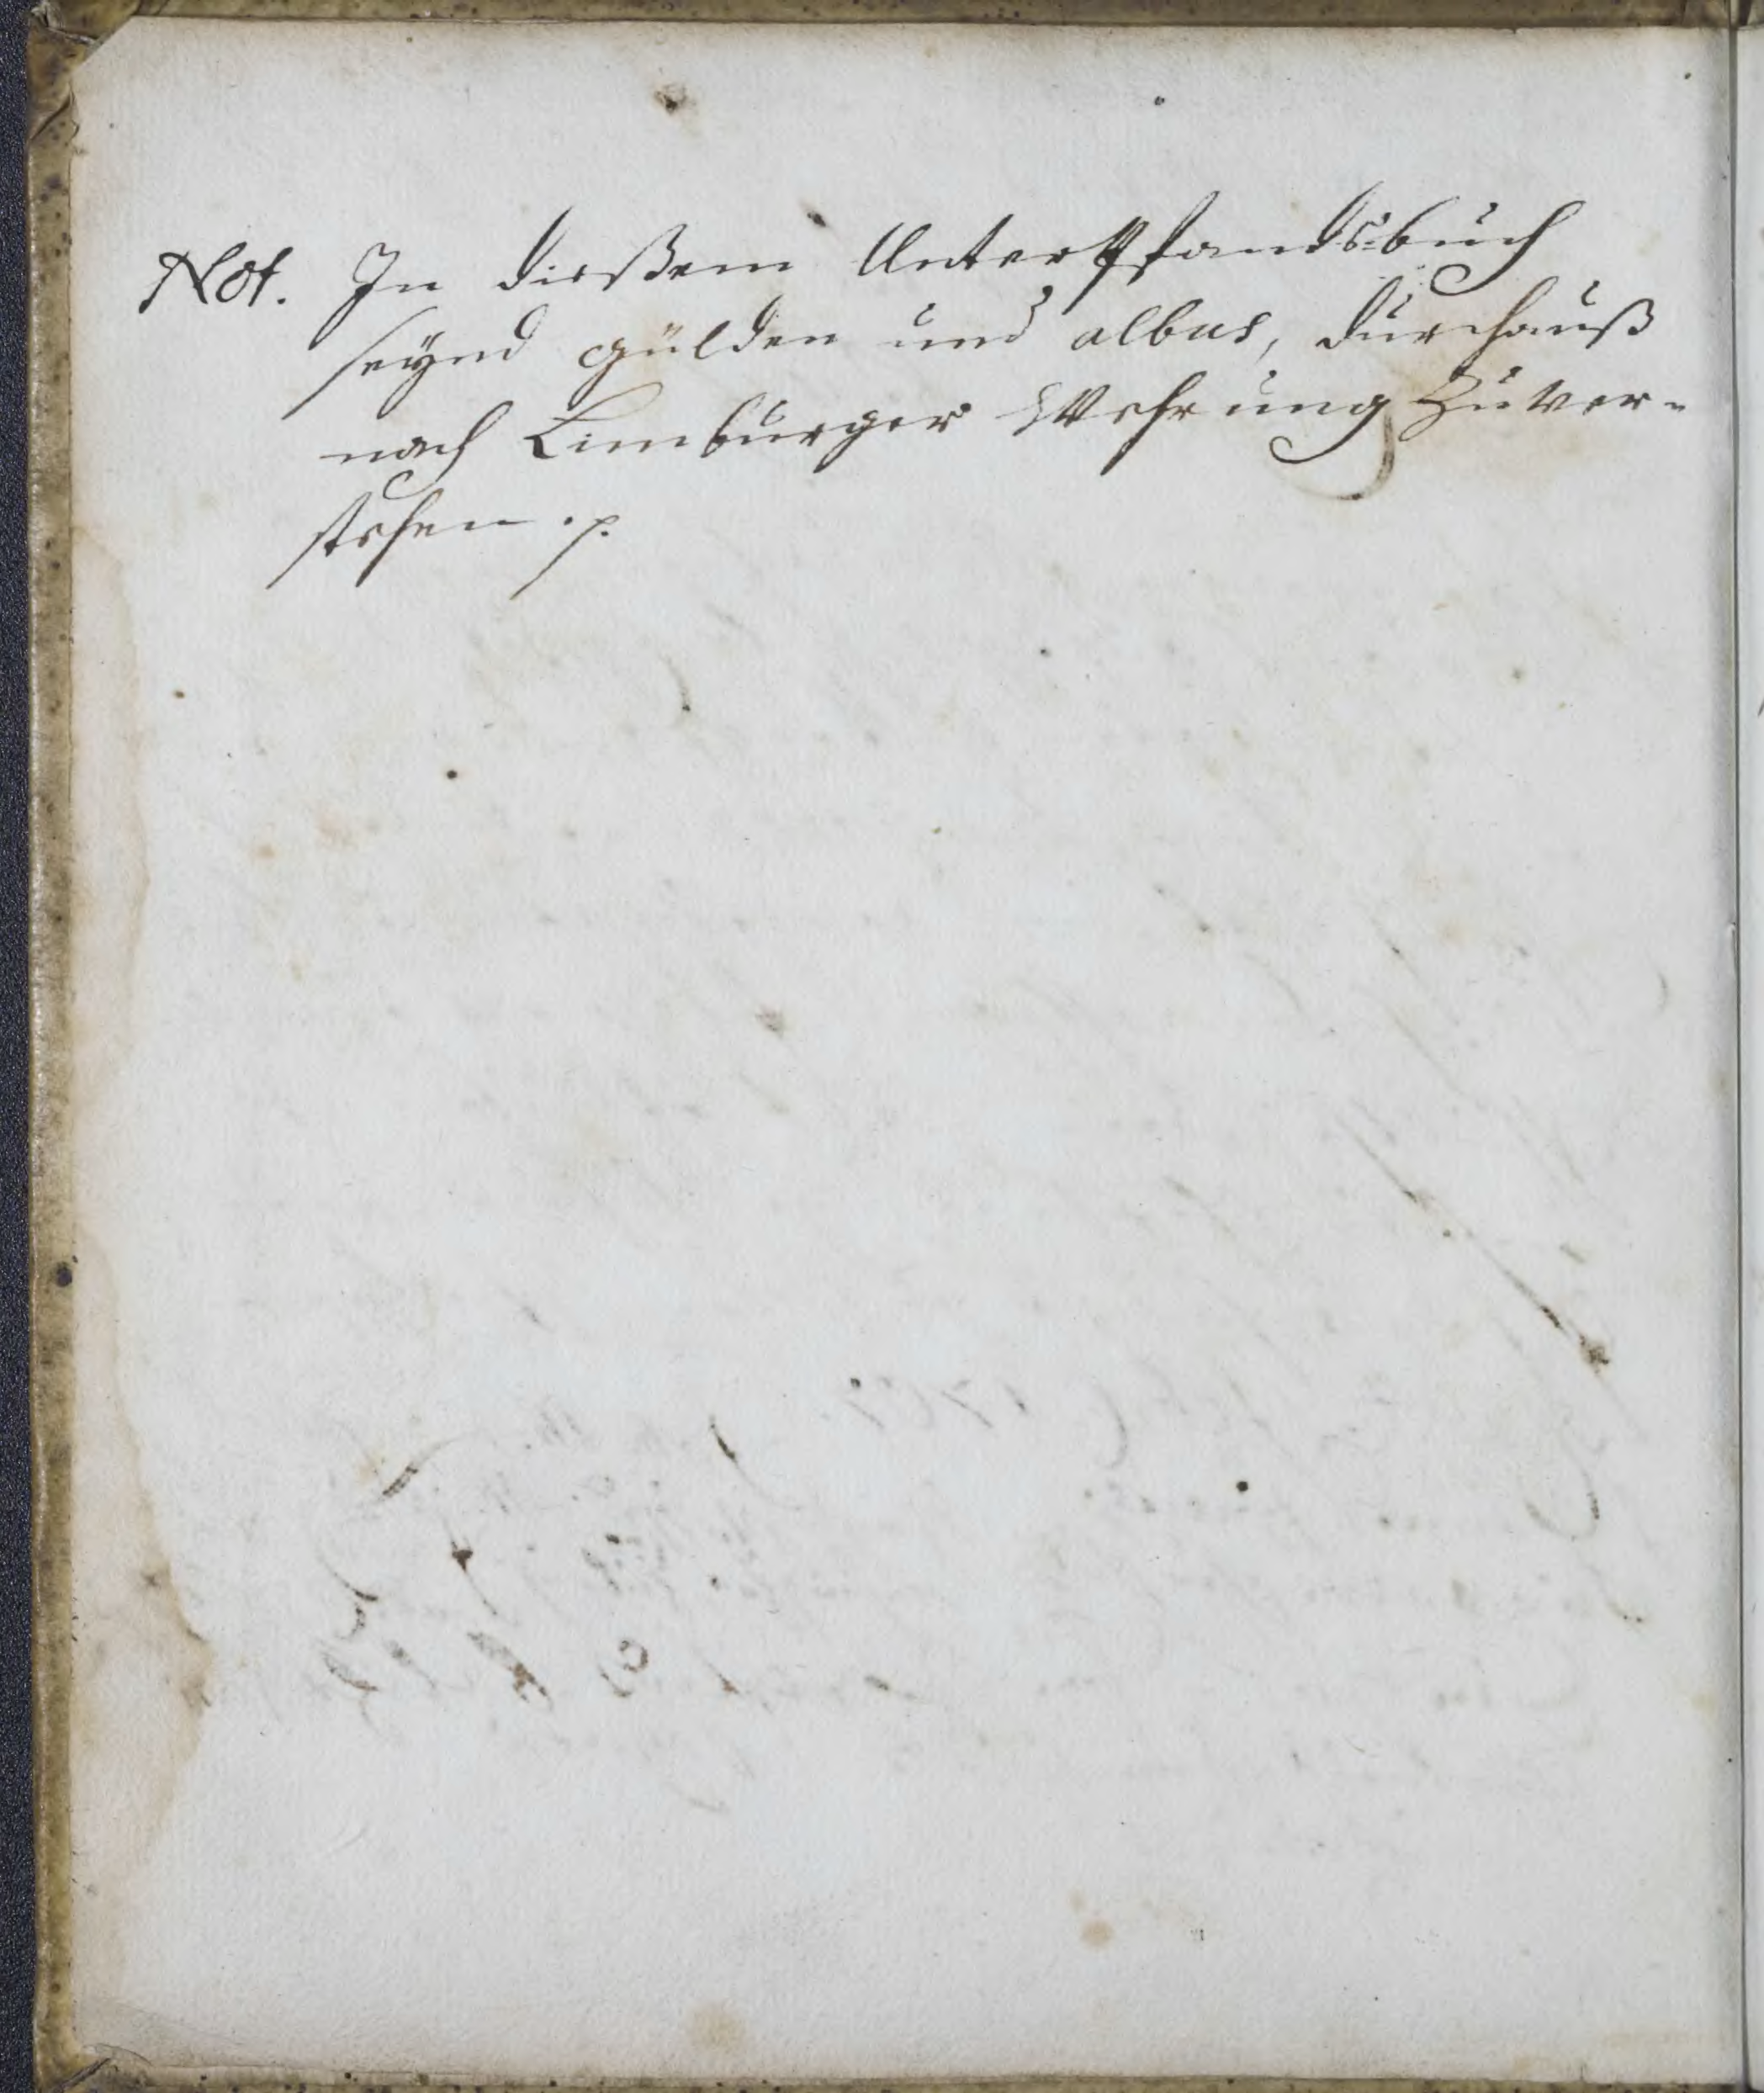 Not. In dießem Unterpfands-buch
seynd gülden und albus, durchauß
nach Limburger Wehrung zu ver-
stehen .p.